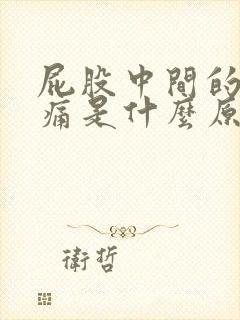 屁股中間的
痛是什麼原
衛哲